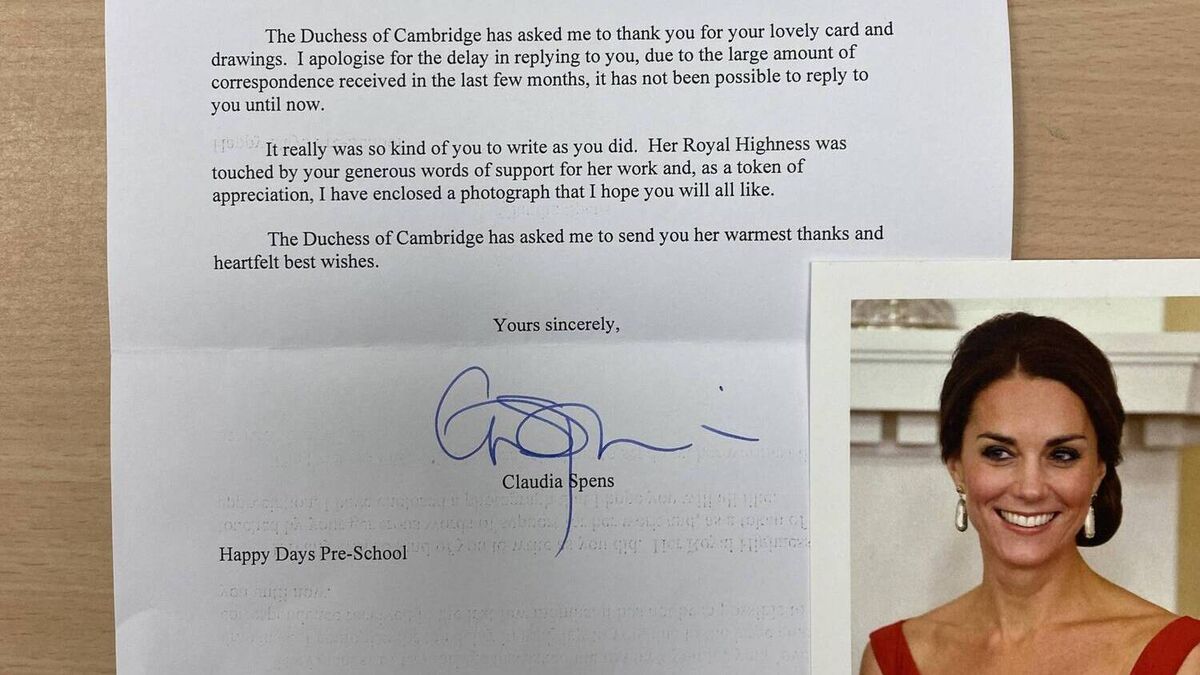 The Duchess of Cambridge has asked me to thank you for your lovely card and
drawings. I apologise for the delay in replying to you, due to the large amount of
correspondence received in the last few months, it has not been possible to reply to
you until now.
It really was so kind of you to write as you did. Her Royal Highness was
touched by your generous words of support for her work and, as a token of
appreciation, I have enclosed a photograph that I hope you will all like.
The Duchess of Cambridge has asked me to send you her warmest thanks and
heartfelt best wishes.
Yours sincerely,
Claudia Spens
Happy Days Pre-School